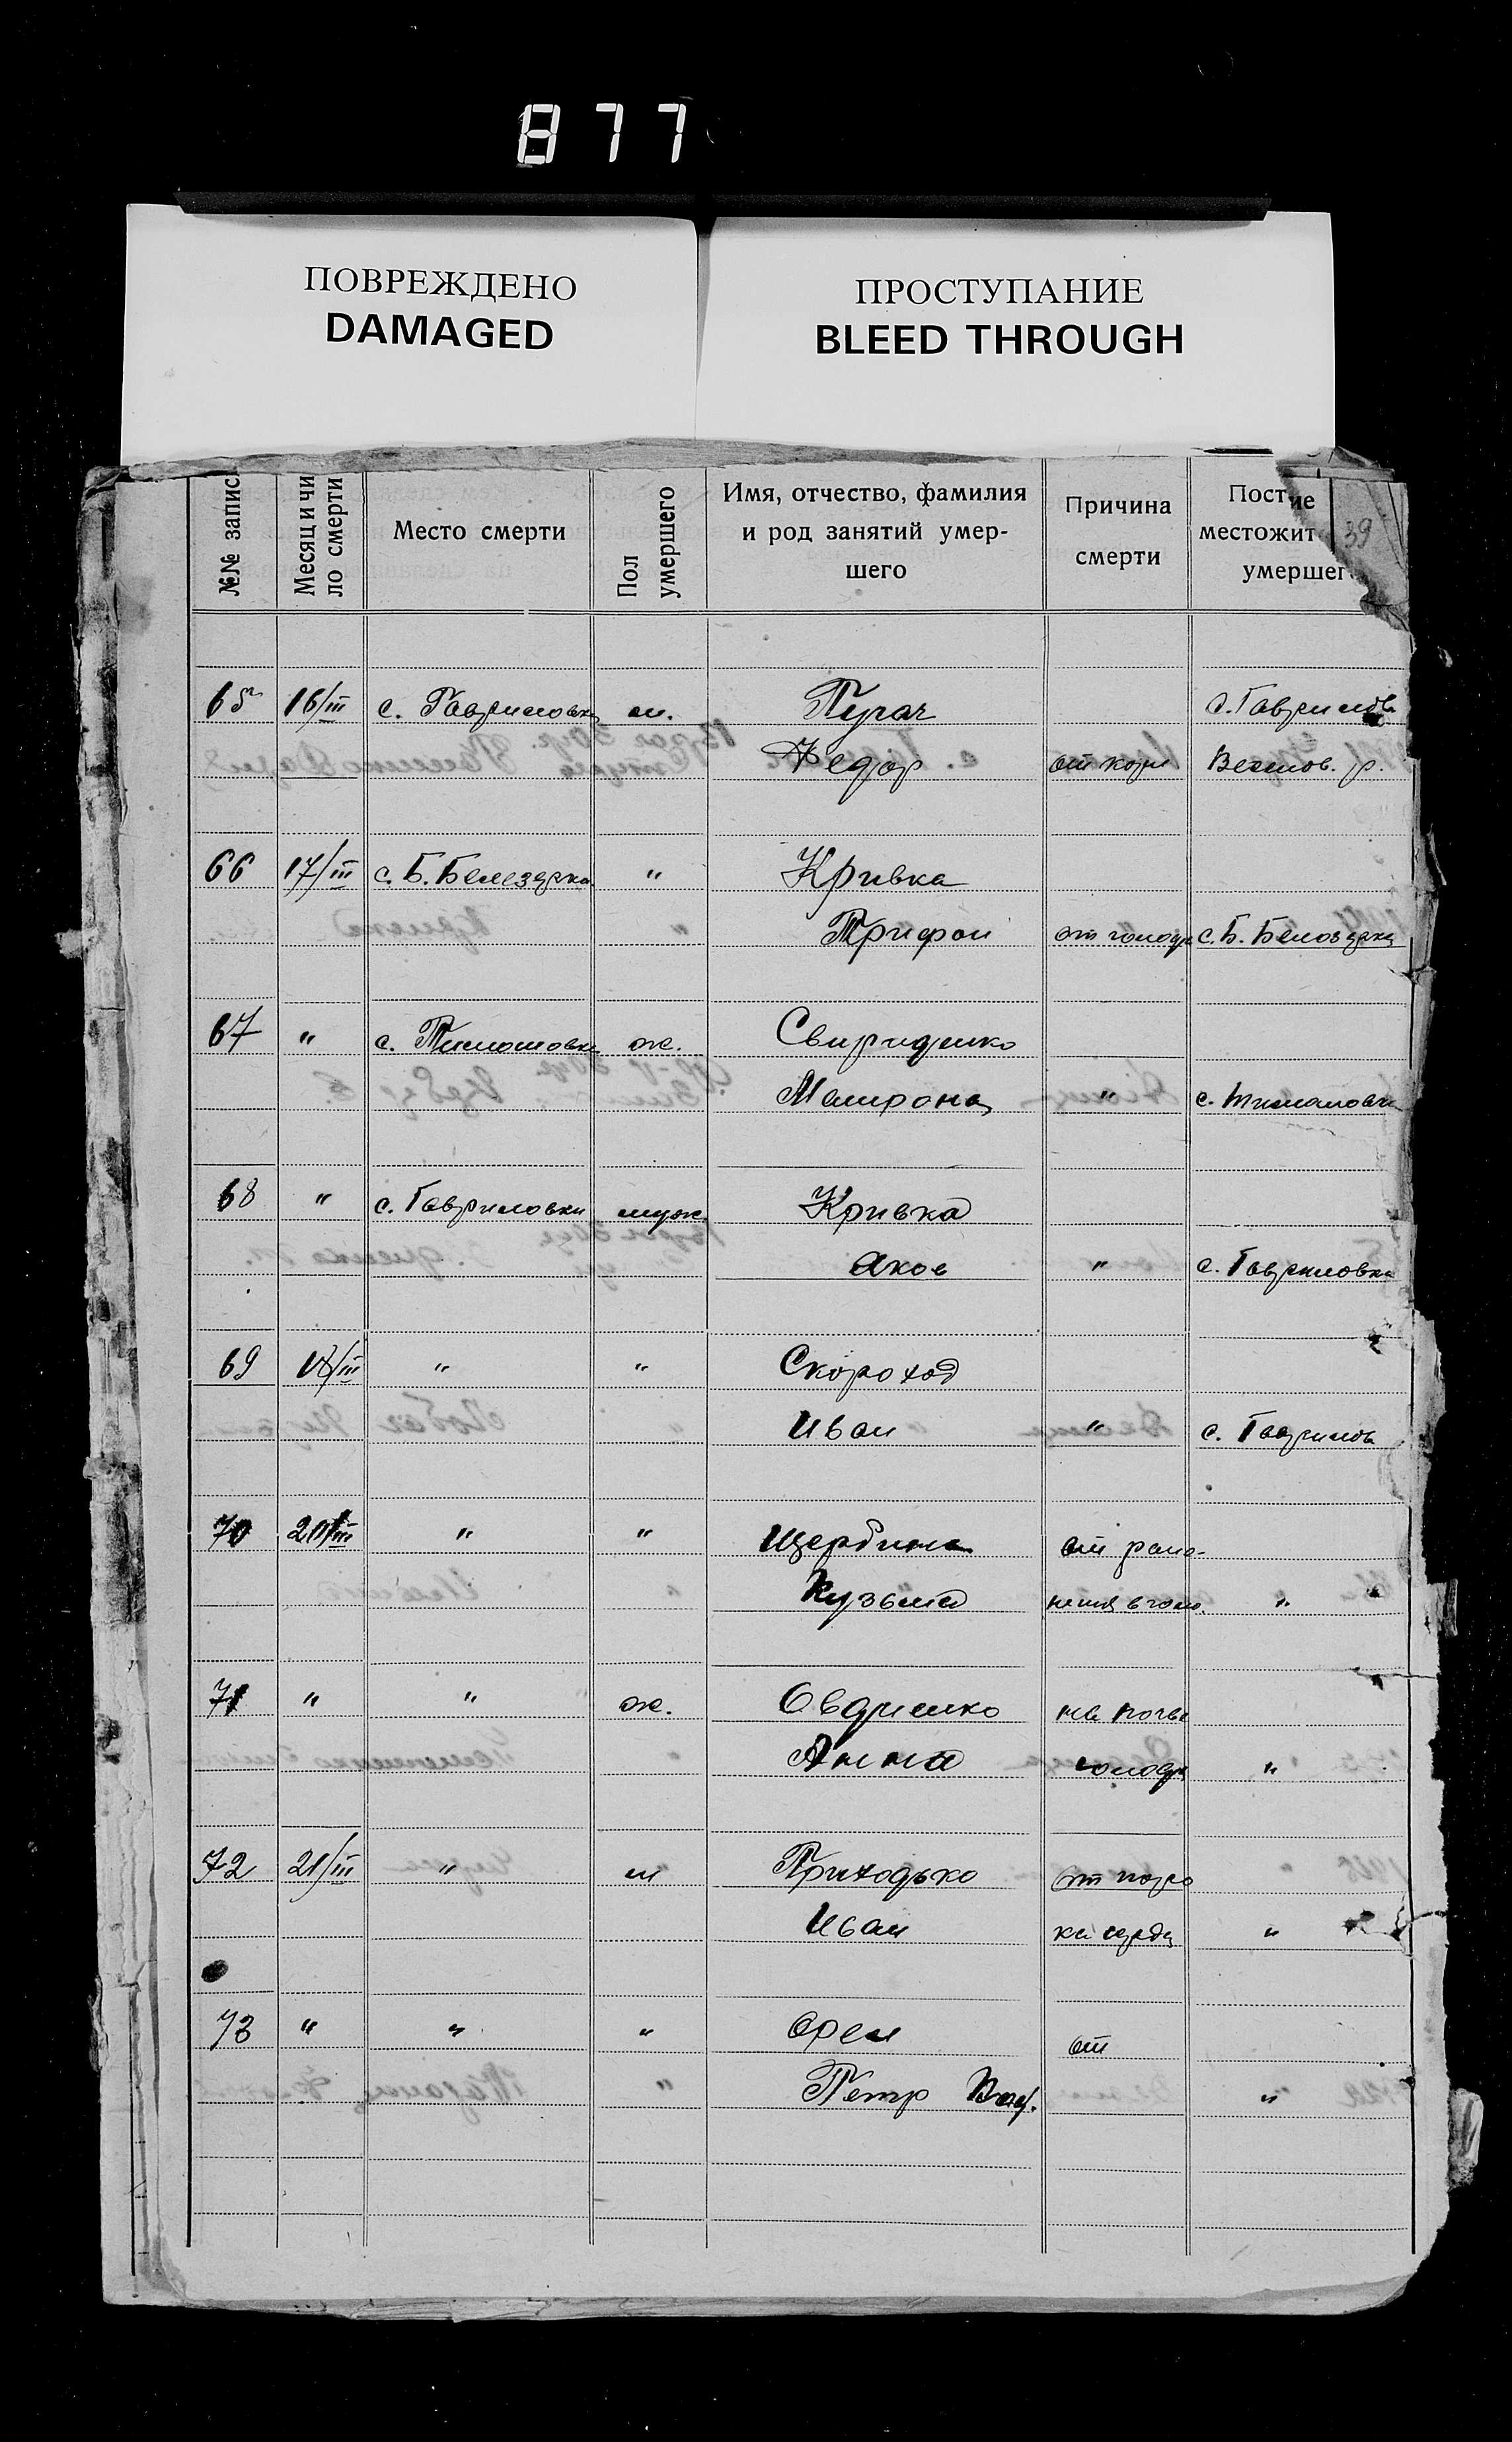 877
ПОВРЕЖДЕНО
DAMAGED
ПРОСТУПАНИЕ
BLEED THROUGH
№№ запис
Месяц и чи
ло смерти
Место смерти
Пол
умершего
Имя, отчество, фамилия
и род занятий умер-
шего
Причина
смерти
Пост ие
местожит
умершег
39
65 16/III с. Гавриловка м. Пугач с. Гаврилов
Федор от Веселов. р.
66 17/III с. Б. Белезерка " Кривка
Трифон от голода с. Б. Белозерка
67 " с. Тимошовка ж. Свириденко
Матрона " с. Тимашовка
68 " с. Гавриловки муж. Кривка
Яков " с. Гавриловка
69 18/III " " Скороход
Иван " с. Гаврилов
70 20/III " " Щербина от ране-
Кузьма ния в голо. " "
71 " " ж. Овдиенко на почве
Анна голода "
72 21/III " м Приходько от поро
Иван ка сердц "
73 " " " Орел от
Петр "